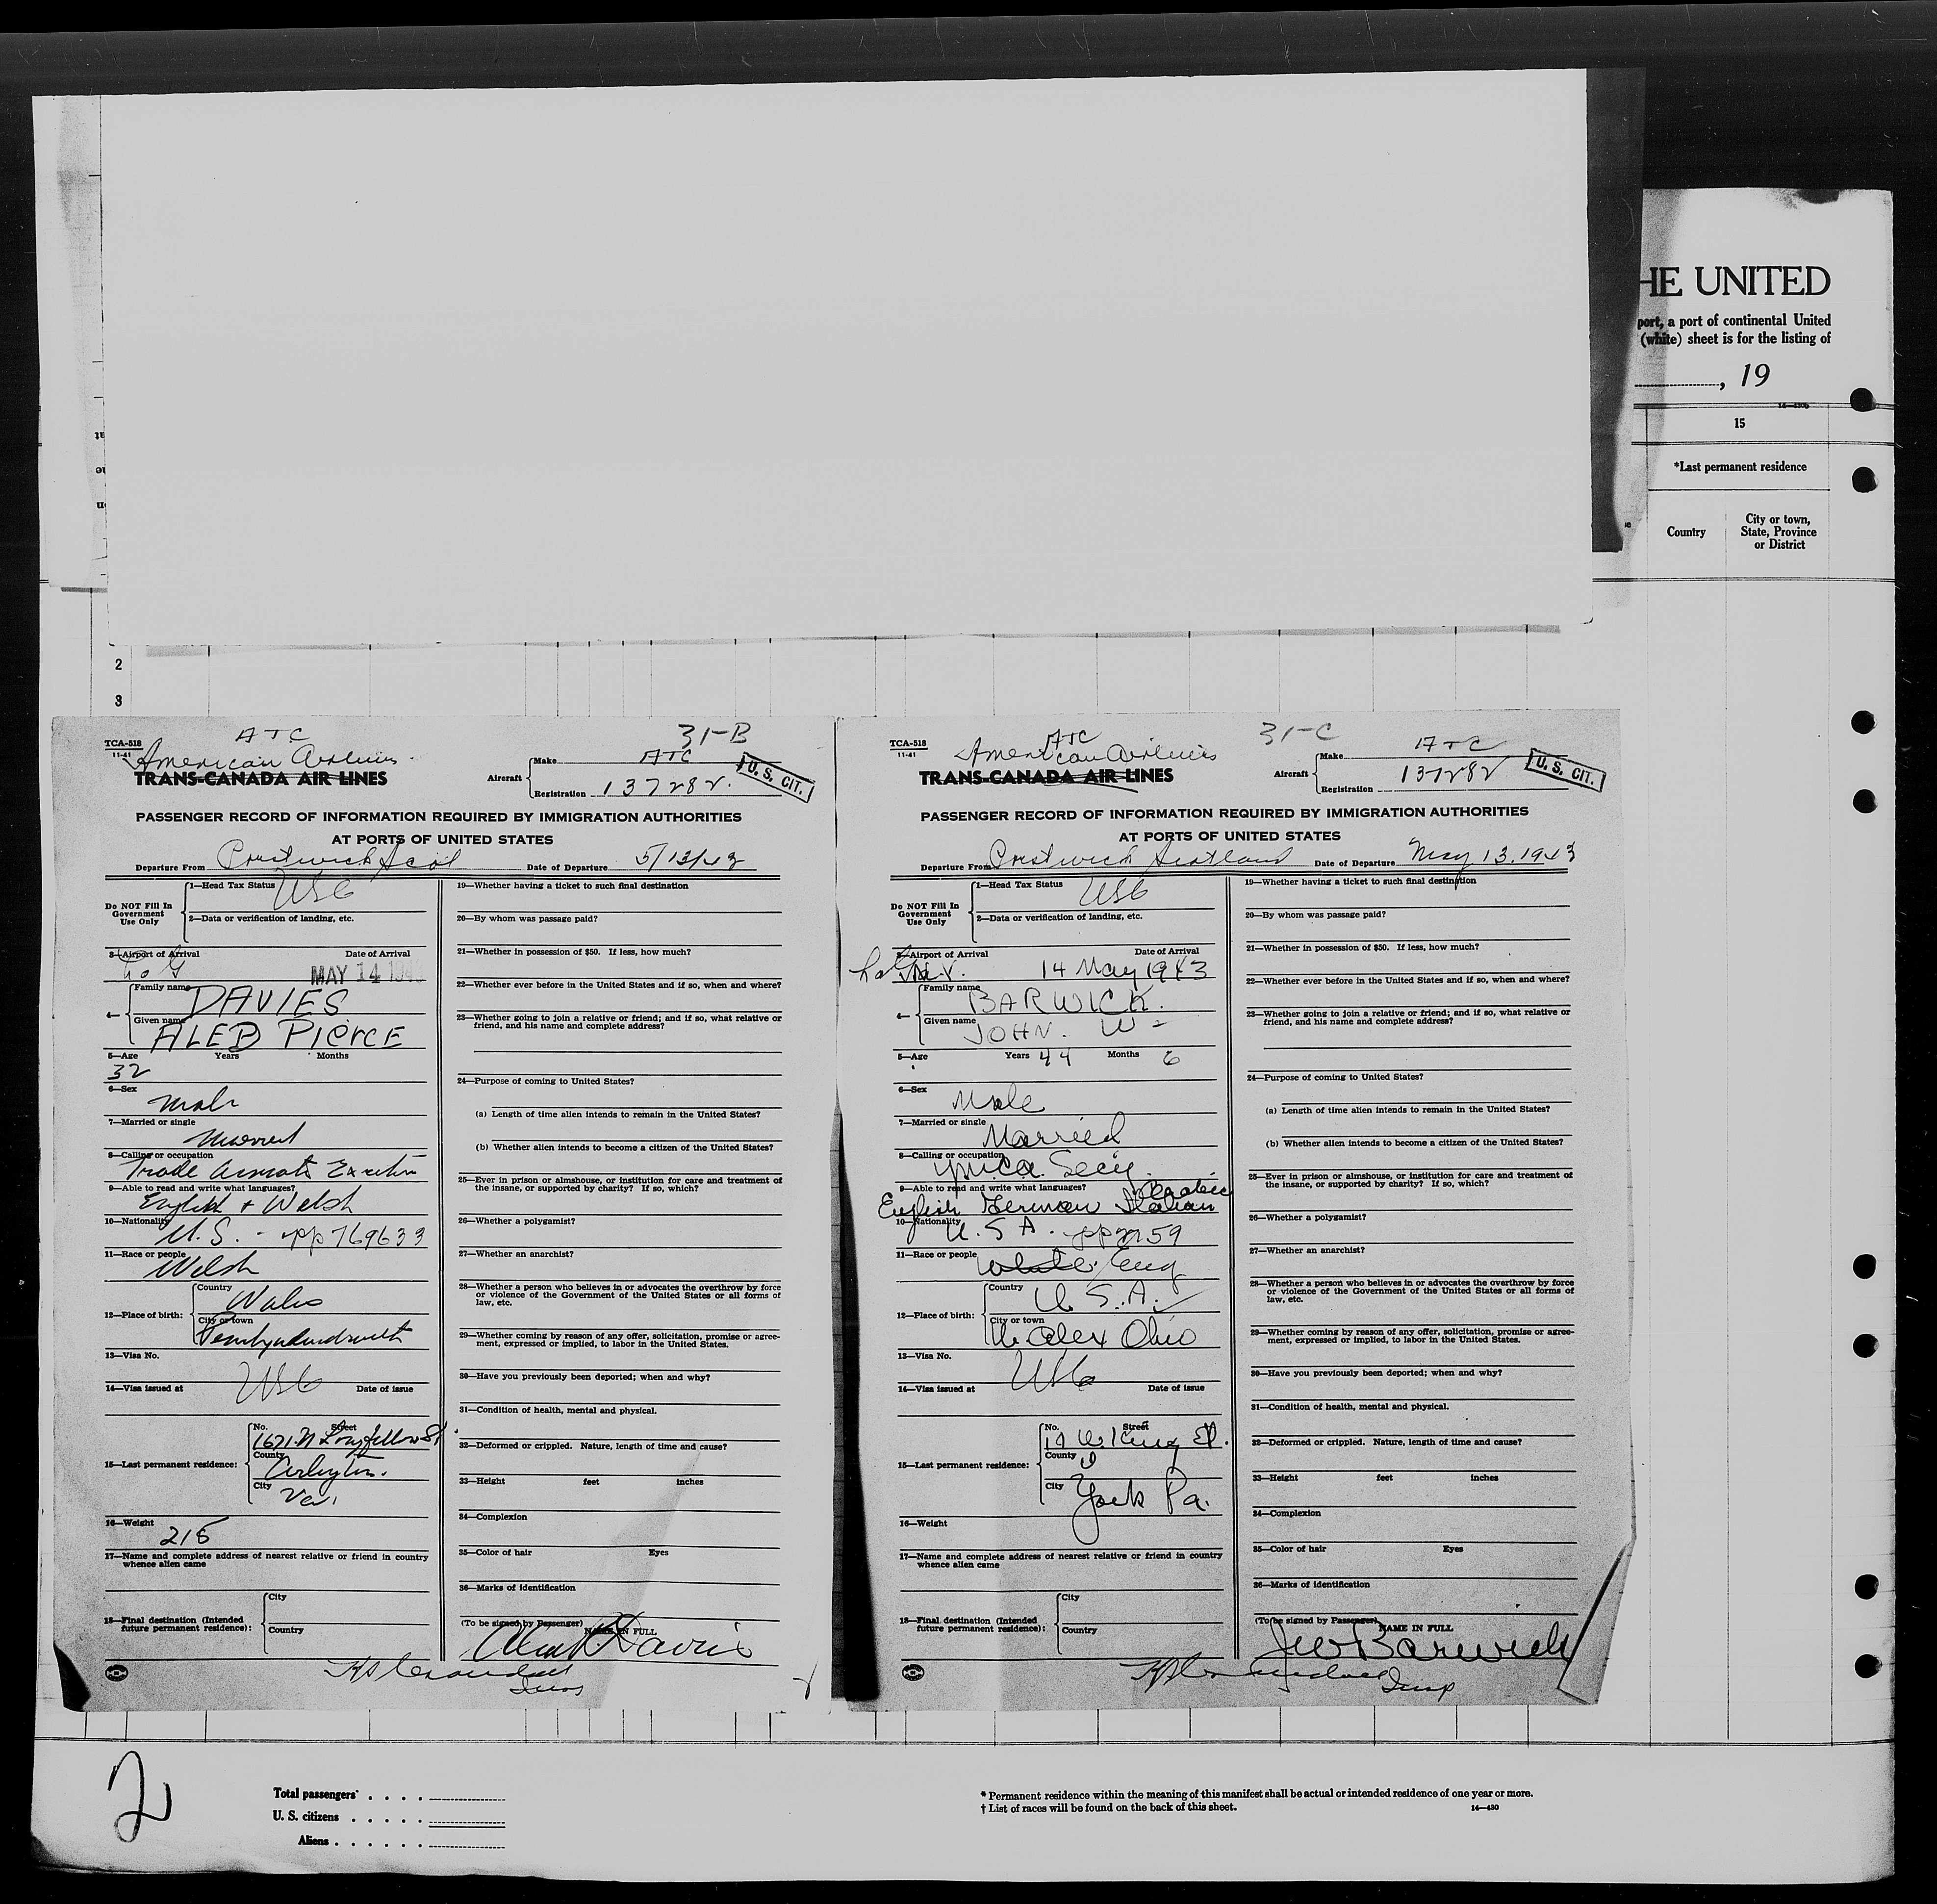 HE UNITED
port, a port of continental United
(white) sheet is for the listing of
, 19
15
*Last permanent residence
Country
City or town,
State, Province
or District
2
3
TCA-518
11-41
ATC
31-B
American Airlines
TRANS-CANADA AIR LINES
Aircraft
Make ATC
Registration 137282.
U. S. CIT.
PASSENGER RECORD OF INFORMATION REQUIRED BY IMMIGRATION AUTHORITIES
AT PORTS OF UNITED STATES
Departure From Prestwick Scot Date of Departure 5/13/43
Do NOT Fill In
Government
Use Only
1—Head Tax Status USC
2—Data or verification of landing, etc.
3—Airport of Arrival Date of Arrival
LaG MAY 14
4—
Family name DAVIES
Given name ALED PIERCE
5—Age Years Months
32
6—Sex
Male
7—Married or single
Married
8—Calling or occupation
Trade
9—Able to read and write what languages?
English + Welsh
10—Nationality
U.S. - pp 769633
11—Race or people
Welsh
12—Place of birth:
Country
Wales
City or town
13—Visa No.
14—Visa issued at USC Date of issue
15—Last permanent residence:
No. Street
1621 N Longfellow St
County
Arlington.
City
Va.
16—Weight
215
17—Name and complete address of nearest relative or friend in country
whence alien came
18—Final destination (Intended
future permanent residence):
City
Country
19—Whether having a ticket to such final destination
20—By whom was passage paid?
21—Whether in possession of $50. If less, how much?
22—Whether ever before in the United States and if so, when and where?
23—Whether going to join a relative or friend; and if so, what relative or
friend, and his name and complete address?
24—Purpose of coming to United States?
(a) Length of time alien intends to remain in the United States?
(b) Whether alien intends to become a citizen of the United States?
25—Ever in prison or almshouse, or institution for care and treatment of
the insane, or supported by charity? If so, which?
26—Whether a polygamist?
27—Whether an anarchist?
28—Whether a person who believes in or advocates the overthrow by force
or violence of the Government of the United States or all forms of
law, etc.
29—Whether coming by reason of any offer, solicitation, promise or agree-
ment, expressed or implied, to labor in the United States.
30—Have you previously been deported; when and why?
31—Condition of health, mental and physical.
32—Deformed or crippled. Nature, length of time and cause?
33—Height feet inches
34—Complexion
35—Color of hair Eyes
36—Marks of identification
(To be signed by Passenger)
NAME IN FULL
Davies
TCA-518
11-41
ATC
31-C
American Airlines
TRANS-CANADA AIR LINES
Aircraft
Make ATC
Registration 137282
U. S. CIT.
PASSENGER RECORD OF INFORMATION REQUIRED BY IMMIGRATION AUTHORITIES
AT PORTS OF UNITED STATES
Departure From Prestwick Scotland Date of Departure May 13, 1943
Do NOT Fill In
Government
Use Only
1—Head Tax Status USC
2—Data or verification of landing, etc.
3—Airport of Arrival Date of Arrival
LaG N.Y. 14 May 1943
4—
Family name BARWICK.
Given name JOHN. W-
5—Age Years 44 Months 6
6—Sex
Male
7—Married or single
Married
8—Calling or occupation
YMCA Secy.
9—Able to read and write what languages? Arabic
English German Italian
10—Nationality
U.S.A.
11—Race or people
White Eng
12—Place of birth:
Country
U.S.A.
City or town
W. Alex Ohio
13—Visa No.
USC
14—Visa issued at Date of issue
15—Last permanent residence:
No. Street
County
City York Pa.
16—Weight
17—Name and complete address of nearest relative or friend in country
whence alien came
18—Final destination (Intended
future permanent residence):
City
Country
19—Whether having a ticket to such final destination
20—By whom was passage paid?
21—Whether in possession of $50. If less, how much?
22—Whether ever before in the United States and if so, when and where?
23—Whether going to join a relative or friend; and if so, what relative or
friend, and his name and complete address?
24—Purpose of coming to United States?
(a) Length of time alien intends to remain in the United States?
(b) Whether alien intends to become a citizen of the United States?
25—Ever in prison or almshouse, or institution for care and treatment of
the insane, or supported by charity? If so, which?
26—Whether a polygamist?
27—Whether an anarchist?
28—Whether a person who believes in or advocates the overthrow by force
or violence of the Government of the United States or all forms of
law, etc.
29—Whether coming by reason of any offer, solicitation, promise or agree-
ment, expressed or implied, to labor in the United States.
30—Have you previously been deported; when and why?
31—Condition of health, mental and physical.
32—Deformed or crippled. Nature, length of time and cause?
33—Height feet inches
34—Complexion
35—Color of hair Eyes
36—Marks of identification
(To be signed by Passenger)
NAME IN FULL
JW Barwick
Insp
2
Total passengers
U. S. citizens
Aliens
* Permanent residence within the meaning of this manifest shall be actual or intended residence of one year or more.
† List of races will be found on the back of this sheet.
14—430